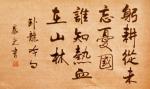 躬耕從未
忘憂國
誰知熱血
在山林
卧龍吟句